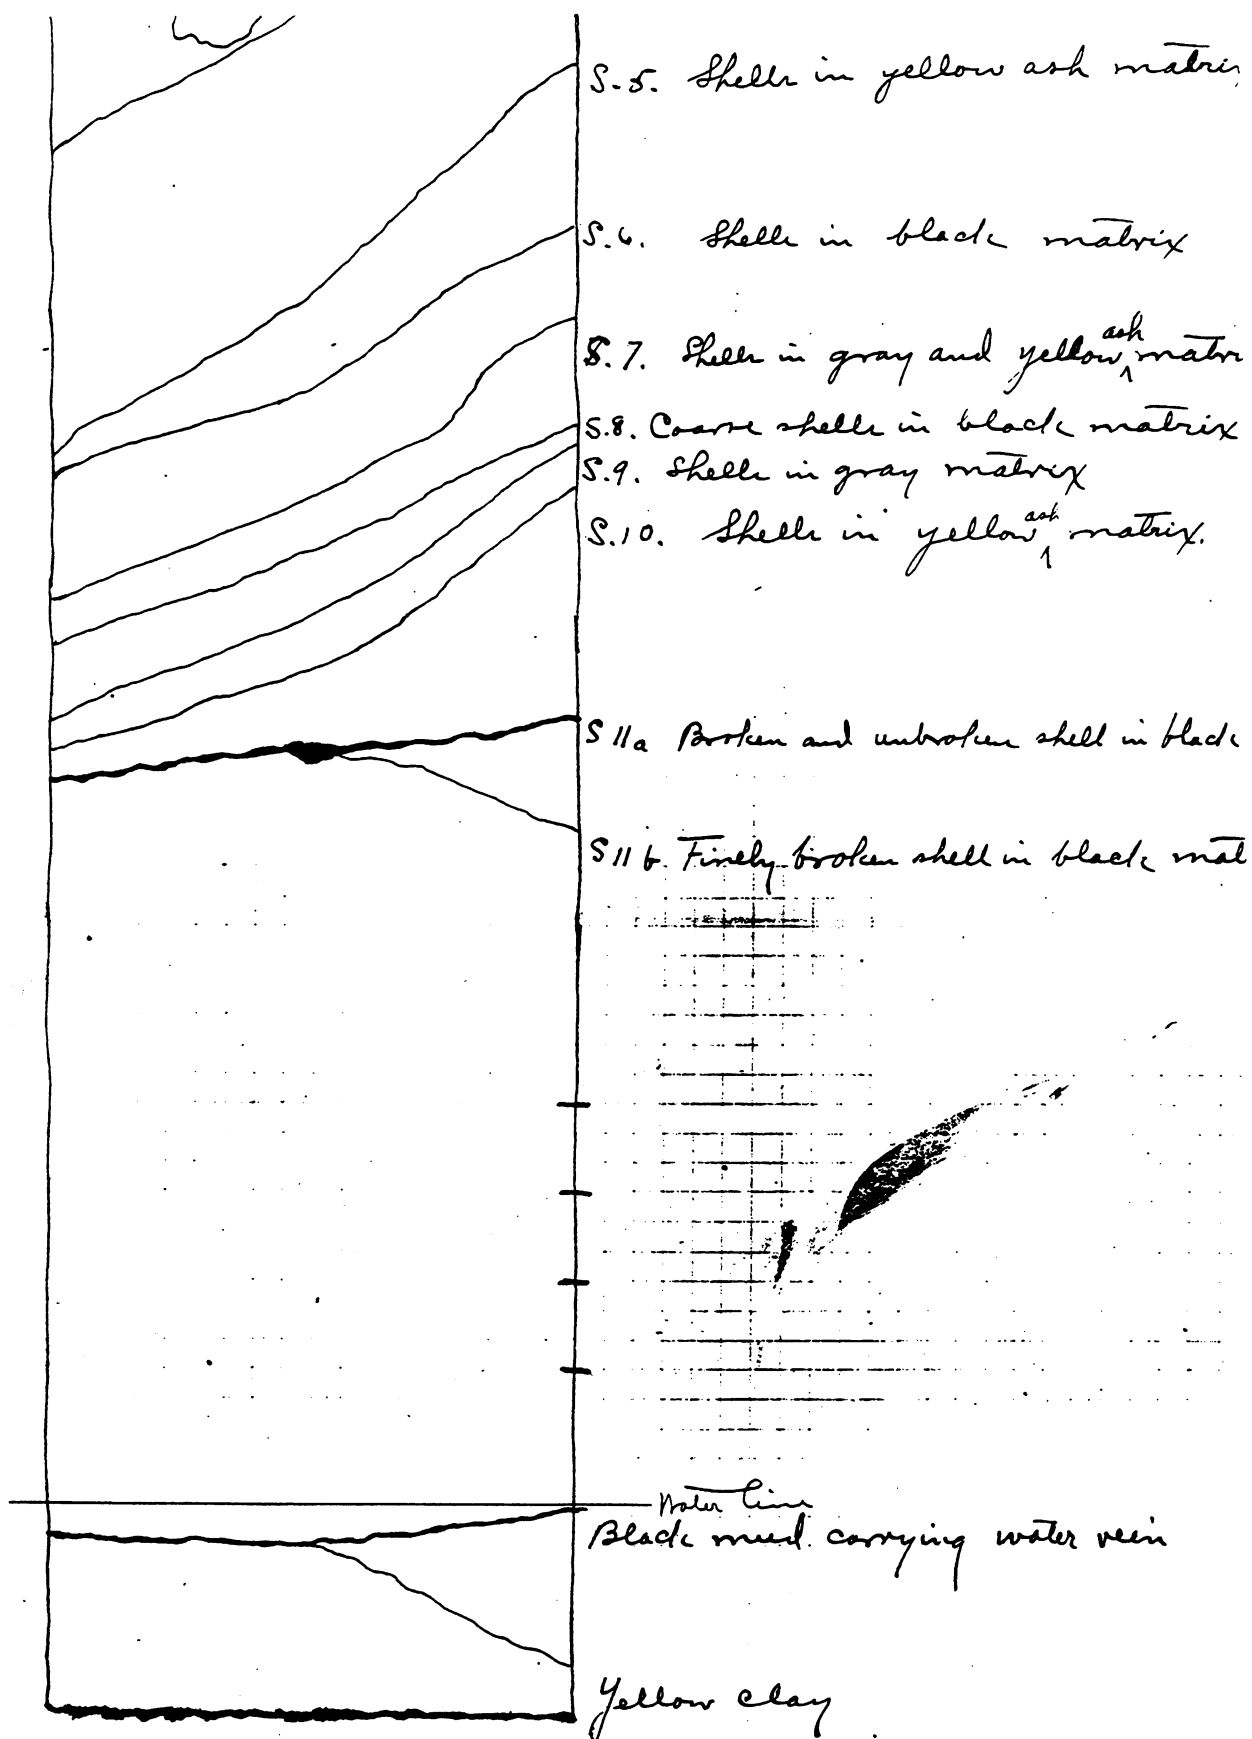 S.5. Shells in yellow ash matrix
S.6. Shells in black matrix
S.7. Shells in gray and yellow ash matri
S.8. Coarse shells in black matrix
S.9. Shells in gray matrix
S.10. Shells in yellow ash matrix.
S 11a Broken and unbroken shell in black
S 11 b. Finely broken shell in black mat
Water line
Black mud carrying water vein
Yellow clay